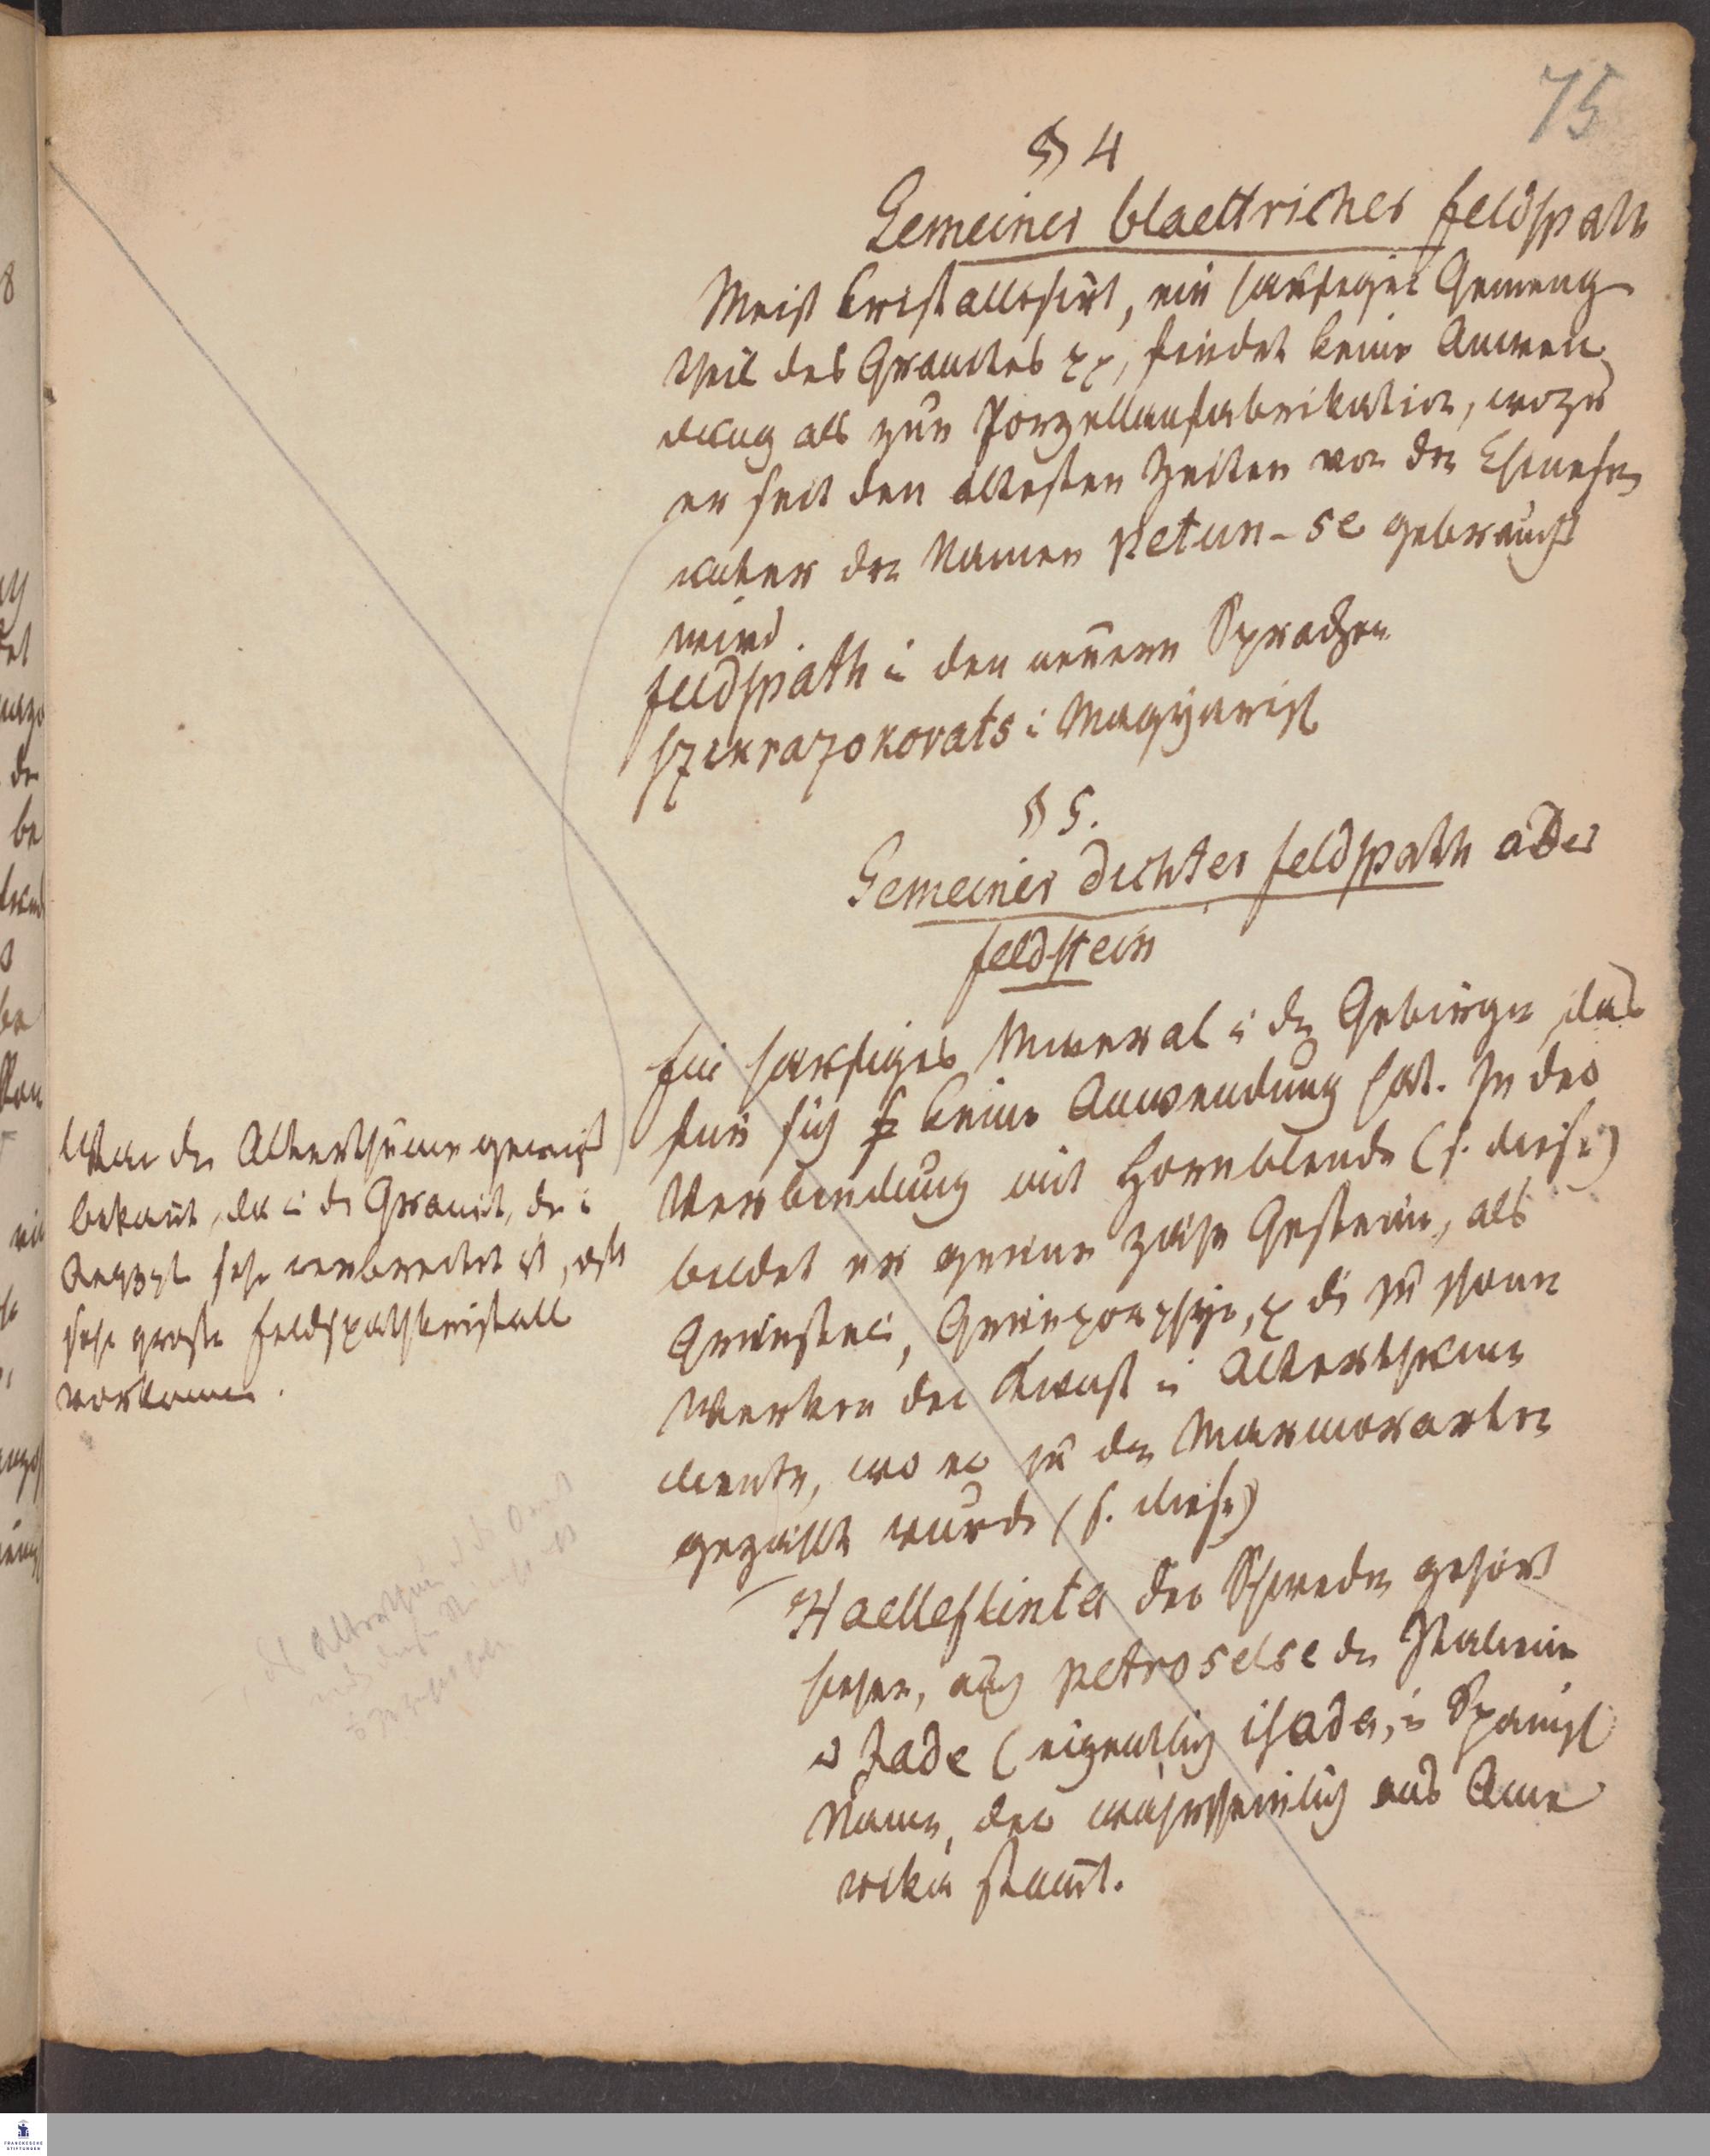 75
§ 4
Gemeiner blaettricher Feldspath
Meist kristallisirt, ein häufiger Gemeng
theil des Granites pp, findet keine Anwen
dung als zur Porzellanfabrikation, wozu
er seit den ältesten Zeiten von den Chinesen
unter dem Namen petun-se gebraucht
wird.
Feldspath in den neuern Sprachen
szikrazokovats i Magyarisch
§ 5.
Gemeiner dichter Feldspath oder
Feldstein
Ein häufiges Mineral i den Gebirgen, das
für sich keine Anwendung hat. In der
Verbindung mit Hornblende (s. diese)
bildet er grüne zähe Gesteine, als
Grünstein, Grünporphyr, die zu
Werken der Kunst i Alterthum
diente, wo er zu den Marmorarten
gezählt wurde (s. diese)
Haelleflinta der Schweden gehört
hieher, auch petroselse der Italiener
u Jade (eigentlich ishada, i Spanisch
Name, der wahrscheinlich aus Ame
rika stamt.
War den Alterthume gewiß
bekant, da i de Granit, der i
Aegypt sehr verbreitet ist, oft
sehr große Feldspathkristalle
vorkomen.